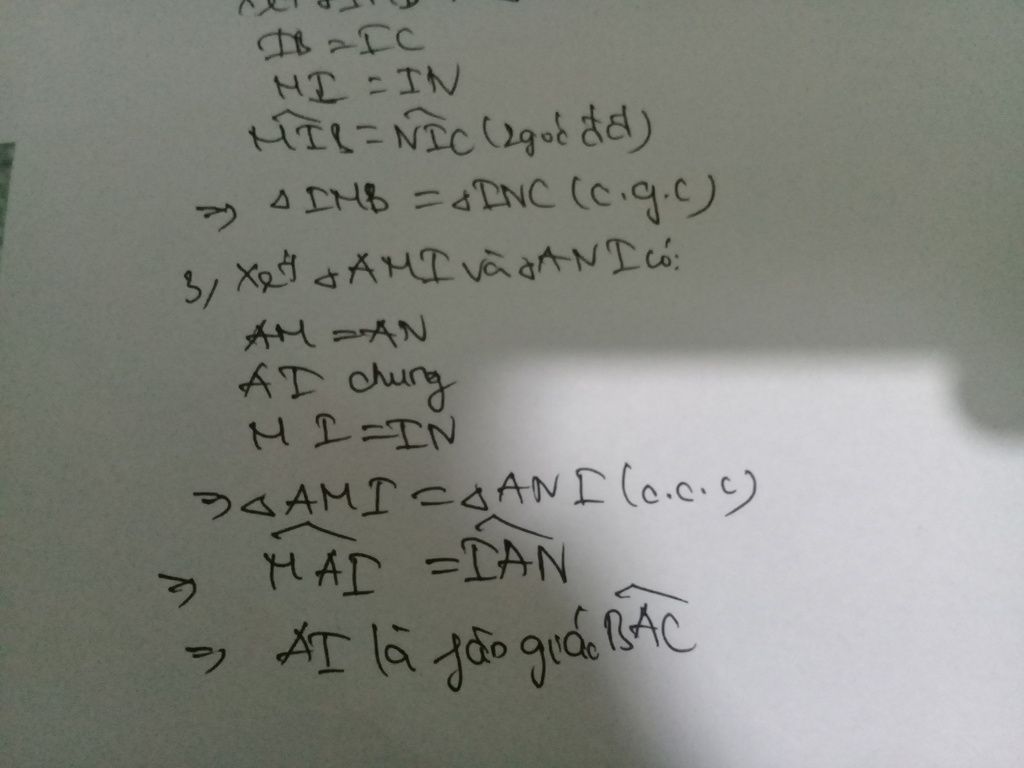 IB = IC
MI = IN
MIB = NIC (2 góc đđ)
=> ΔIMB = ΔINC (c.g.c)
3, Xét ΔAMI và ΔANI có:
AM = AN
AI chung
MI = IN
=> ΔAMI = ΔANI (c.c.c)
=> MAI = IAN
=> AI là phân giác BAC